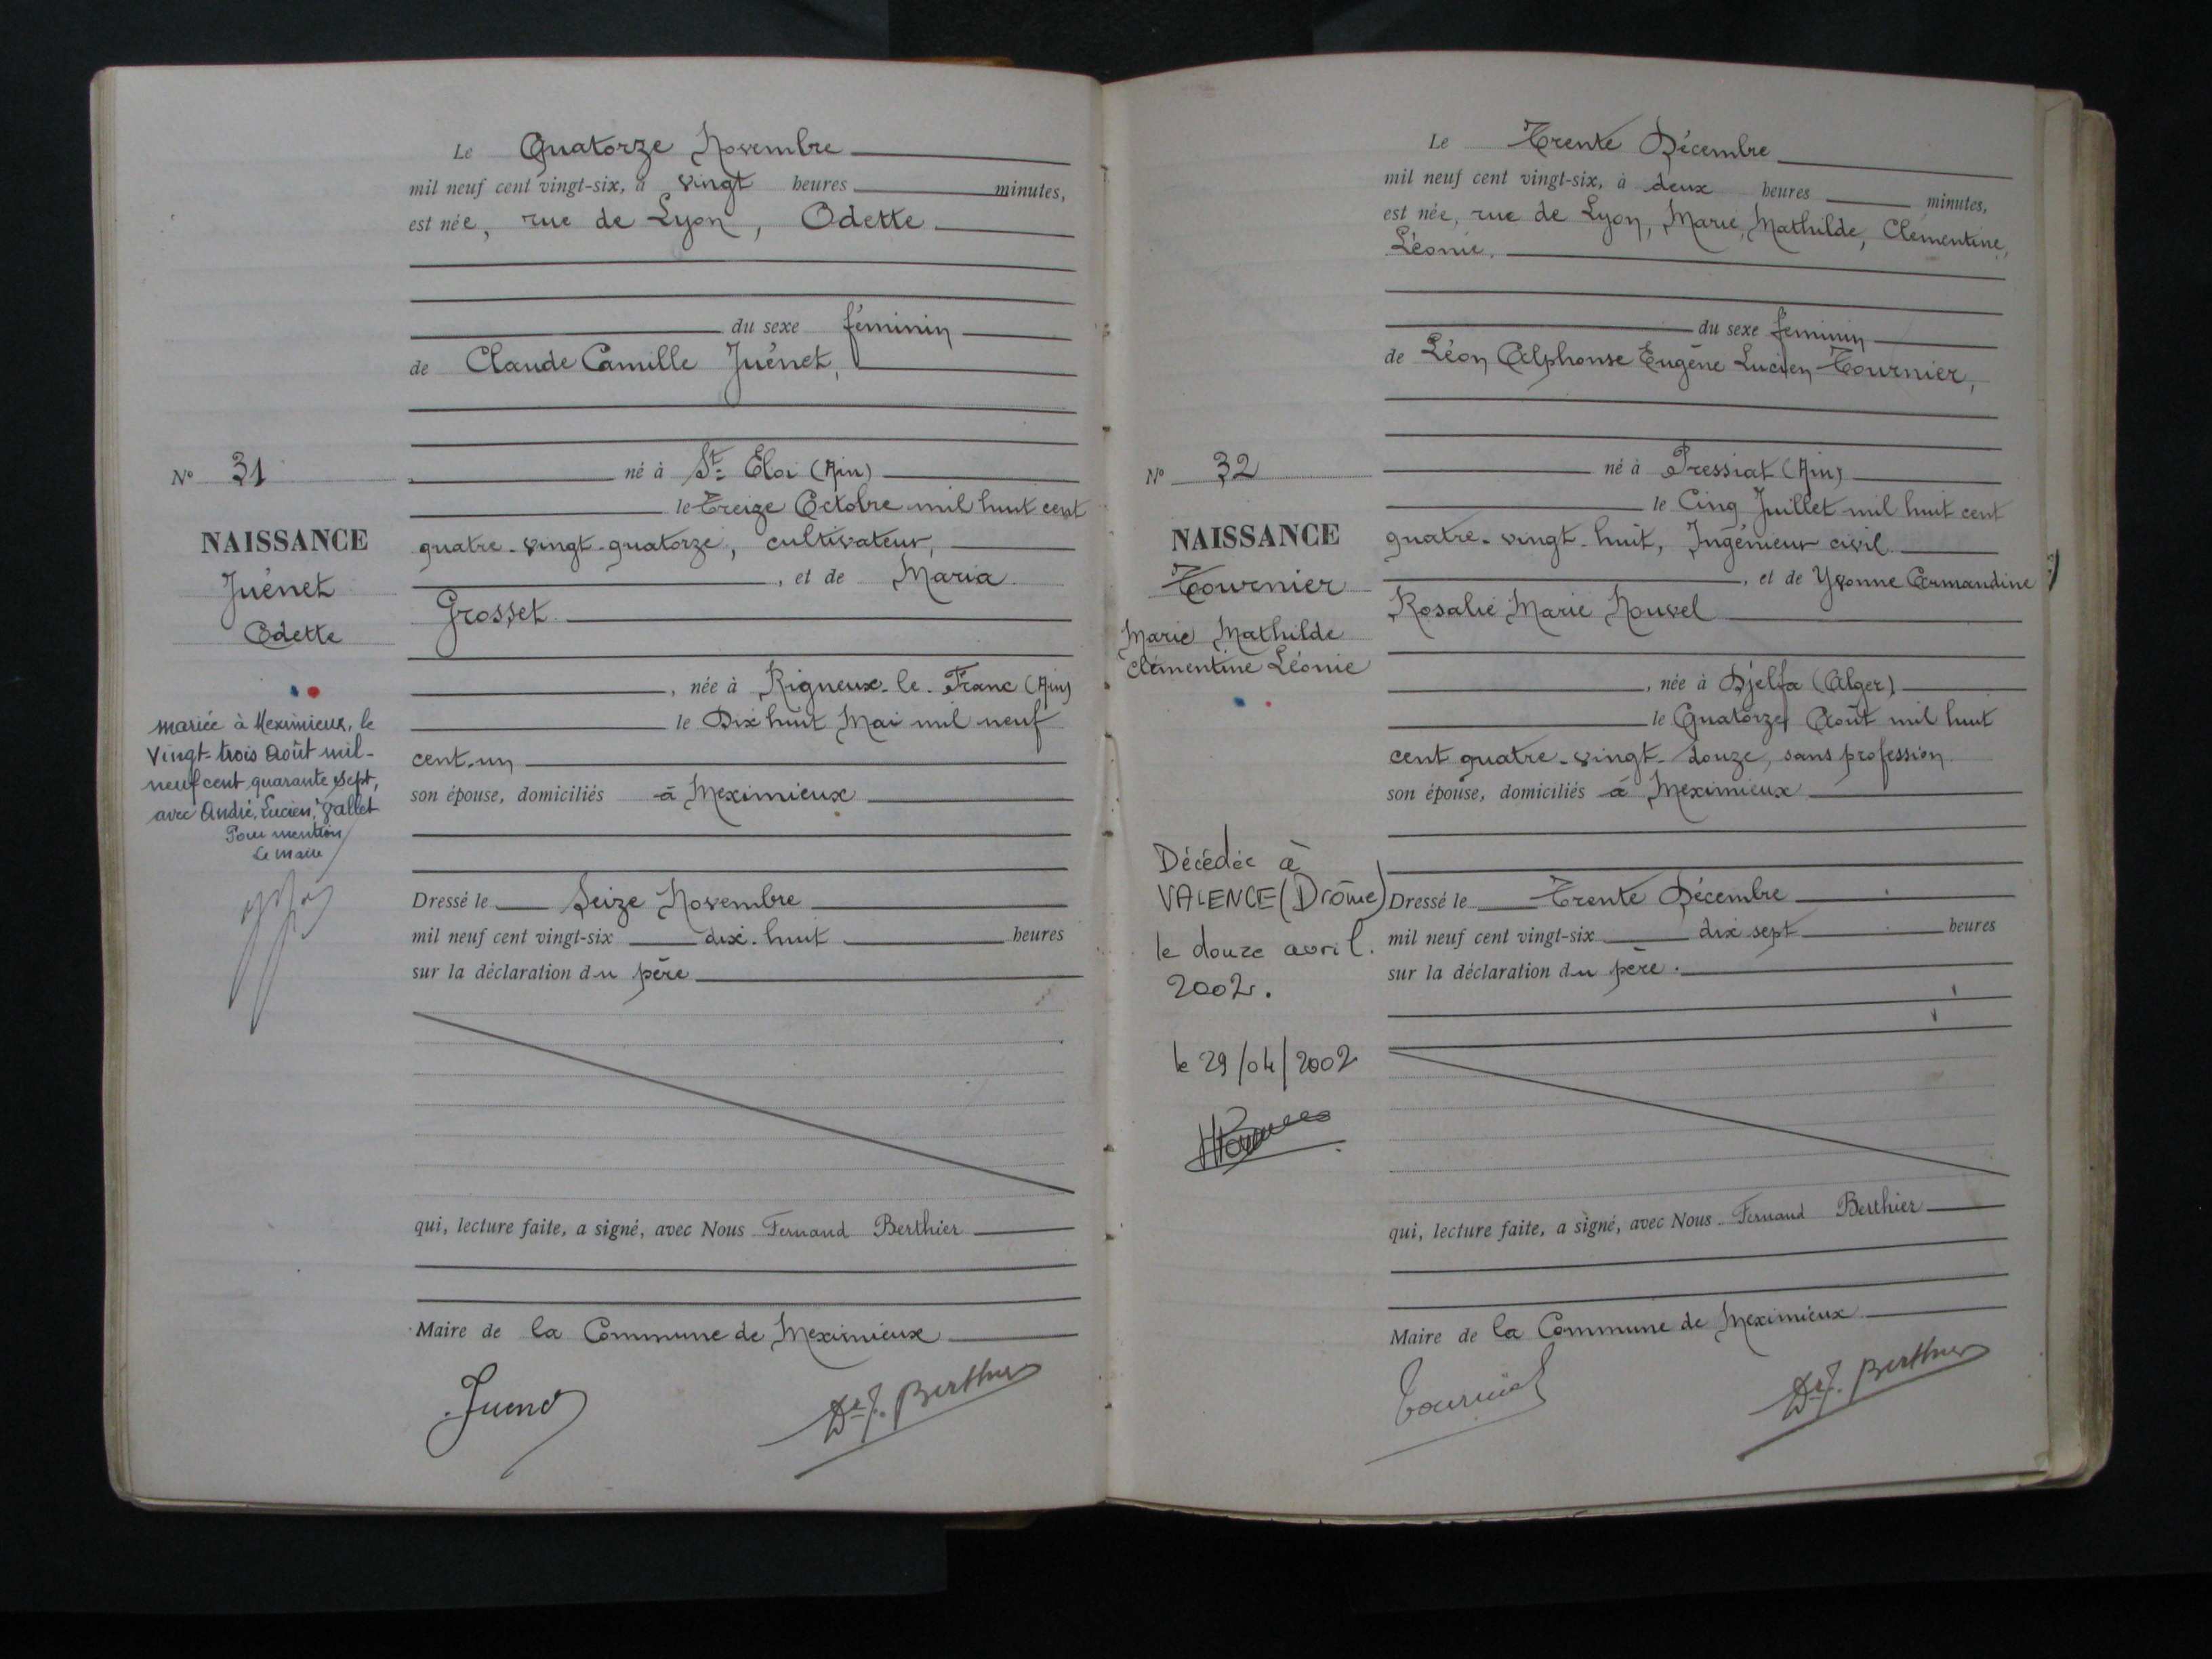 Le Quatorze Novembre
mil neuf cent vingt-six, à vingt heures minutes,
est née, rue de Lyon, Odette
du sexe féminin
de Claude Camille Juénet,
né à St Eloi (Ain)
le Treize Octobre mil huit cent
quatre-vingt-quatorze, cultivateur,
, et de Maria
Grosset
, née à Rigneux-le-Franc (Ain)
le Dix huit Mai mil neuf
cent-un
son épouse, domiciliés à Meximieux
Dressé le Seize Novembre
mil neuf cent vingt-six dix-huit heures
sur la déclaration du père
qui, lecture faite, a signé, avec Nous Fernand Berthier
Maire de la Commune de Meximieux
Dr F. Berthier
N° 31
NAISSANCE
Juénet
Odette
mariée à Meximieux, le
Vingt-trois Août mil-
neuf cent quarante sept,
avec André, Lucien, Vallet
Pour mention
Le maire
Le Trente Décembre
mil neuf cent vingt-six, à deux heures minutes,
est née, rue de Lyon, Marie, Mathilde, Clémentine,
Léonie.
du sexe féminin
de Léon Alphonse Eugène Lucien Tournier,
né à Pressiat (Ain)
le Cinq Juillet mil huit cent
quatre-vingt-huit, Ingénieur civil
, et de Yvonne Armandine
Rosalie Marie Nouvel
, née à Djelfa (Alger)
le Quatorze Août mil huit
cent quatre-vingt-douze, sans profession
son épouse, domiciliés à Meximieux
Dressé le Trente Décembre
mil neuf cent vingt-six dix sept heures
sur la déclaration du père.
qui, lecture faite, a signé, avec Nous Fernand Berthier
Maire de la Commune de Meximieux
Dr F. Berthier
N° 32
NAISSANCE
Tournier
Marie Mathilde
Clémentine Léonie
Décédée à
VALENCE (Drôme)
le douze avril
2002.
le 29/04/2002